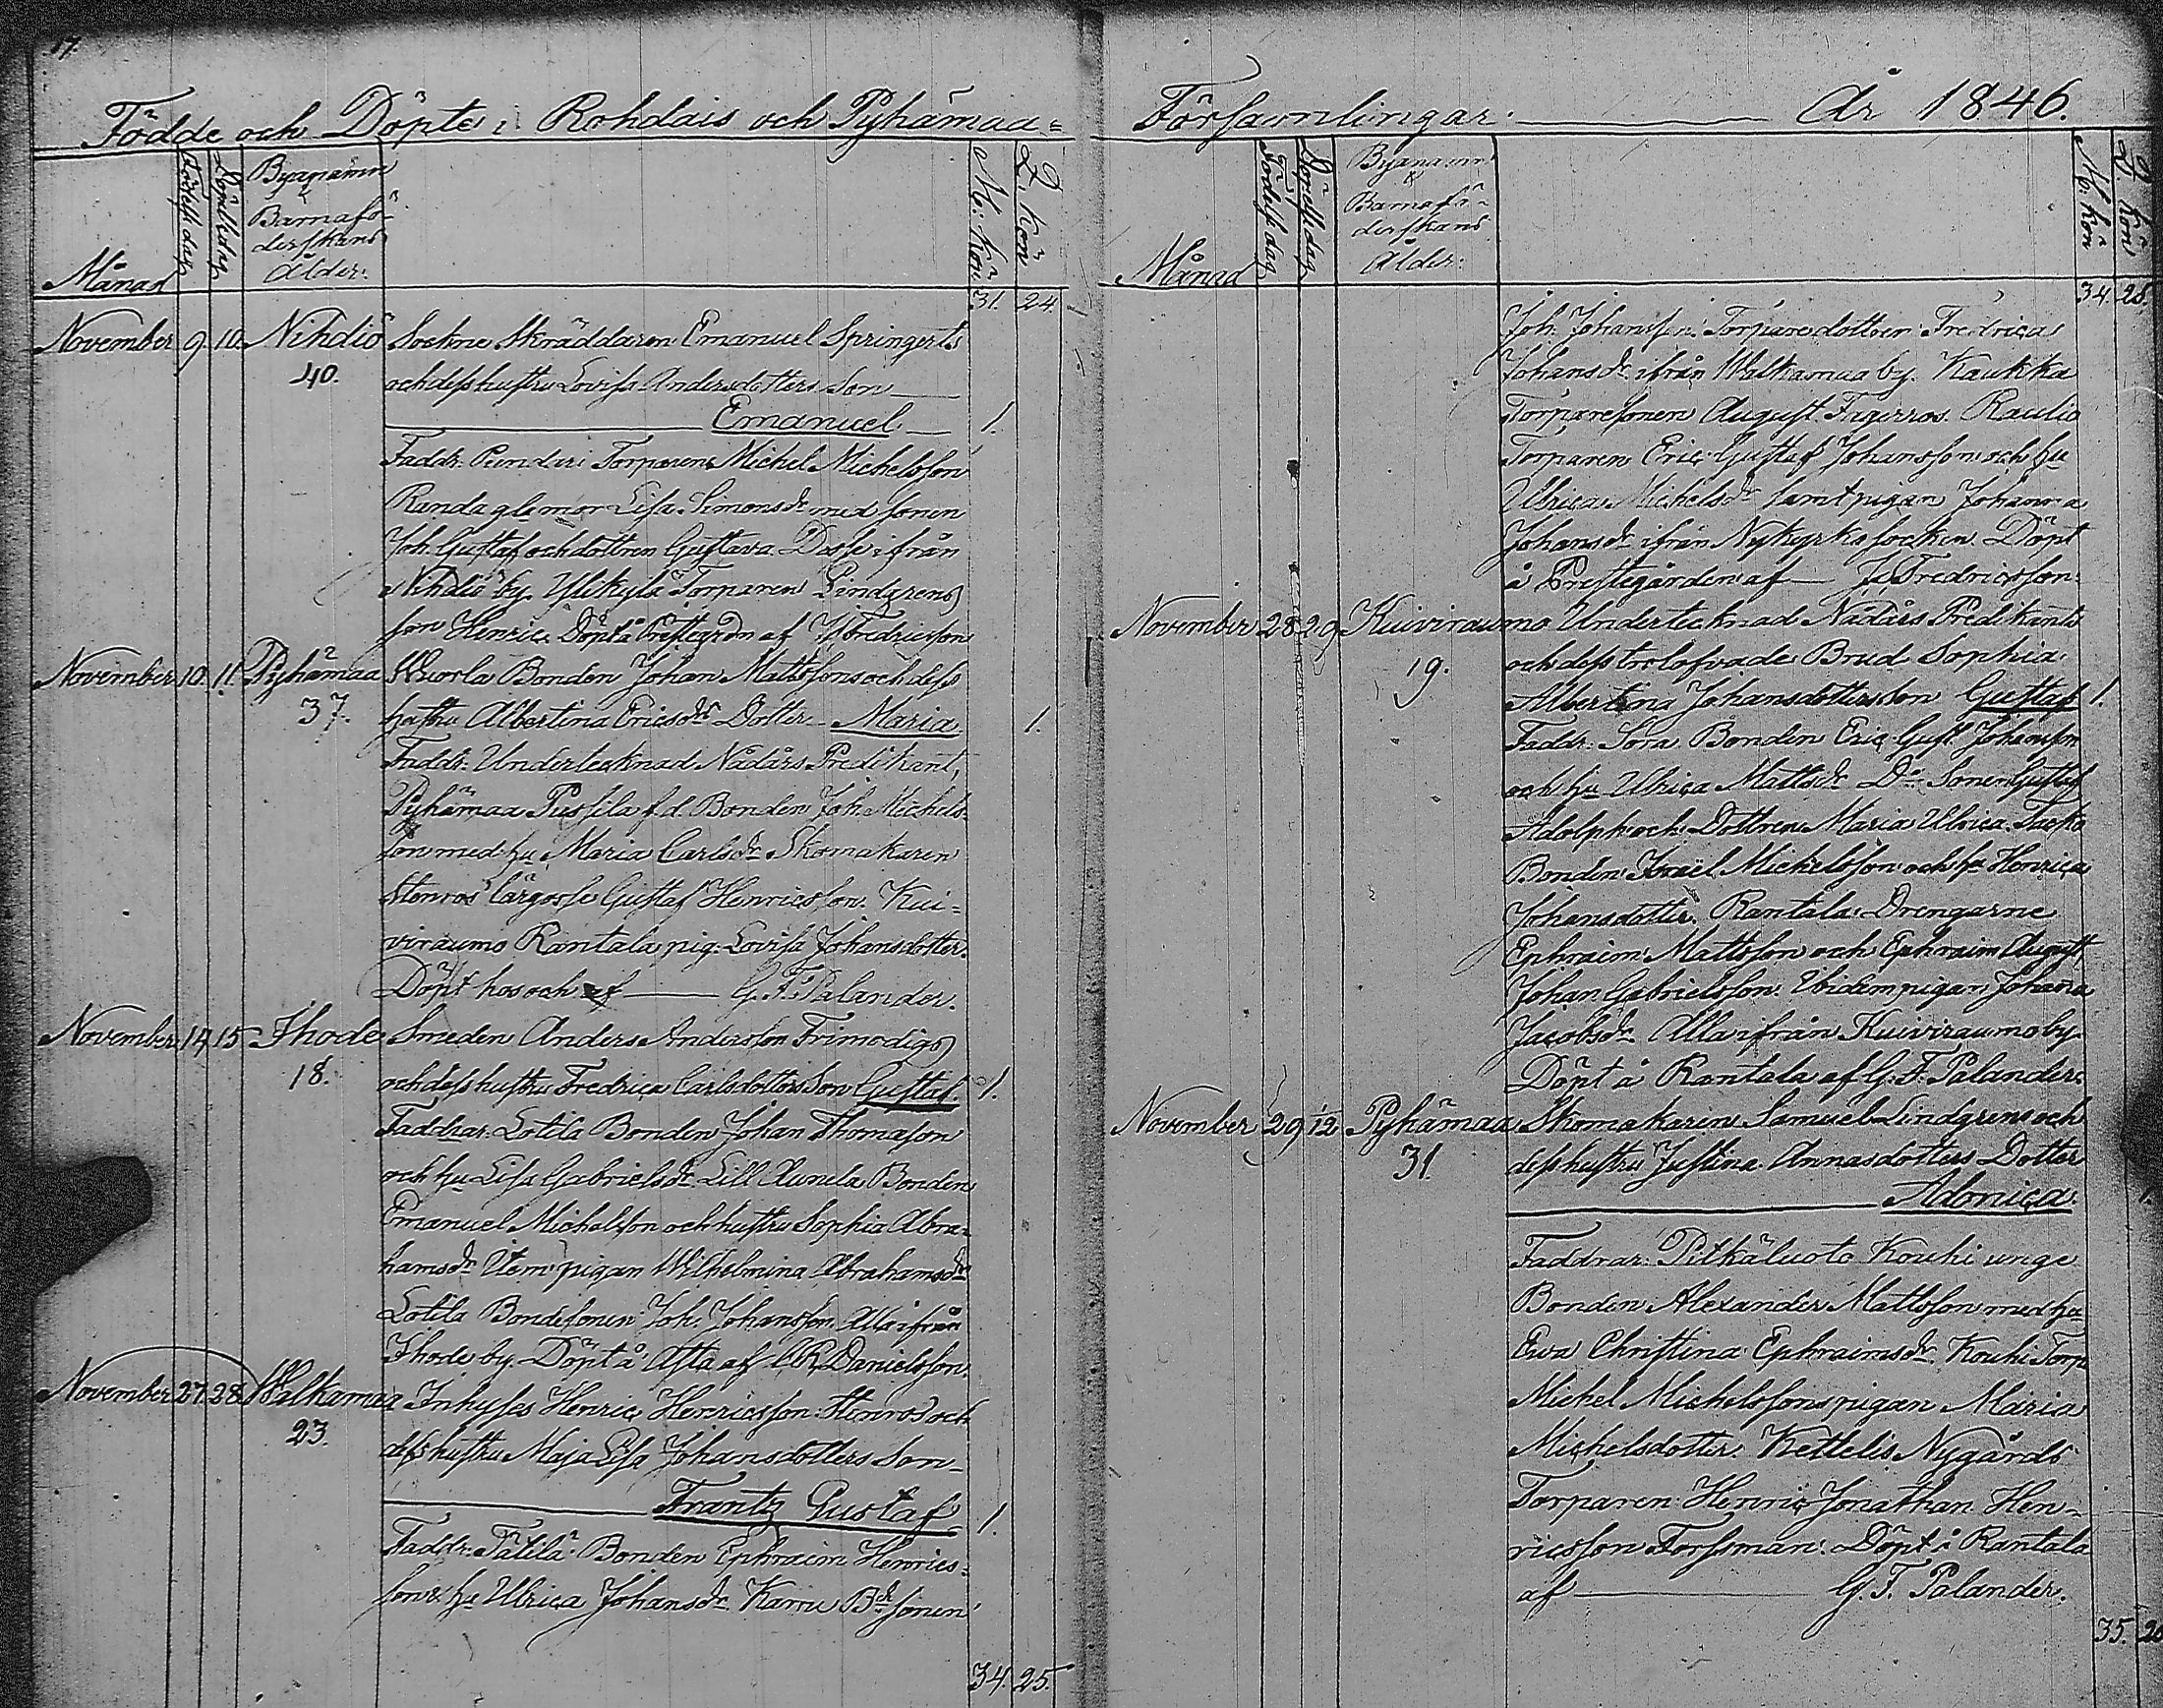 17.
Födde och Döpte i Rohdais och Pyhämaa=
Månad
Födelsedag
Döpelsedag
Byanamn
&
Barnafö-
derskans
Ålder:
M: kön
Q. kön
31. 24.
November 9 10. Nihdiö Sockne Skräddaren Emanuel Springerts
40. och dess hustru Lovisa Andersdotters Son
Emanuel 1.
Faddr: Torparen Michel Michelsson
Randa mor Lisa Simonsdr med sonen
Joh. Gustaf och dottren Gustava Dosse ifrån
Nihdiö by Ylikylä Torparen Lindgrens
son Henric. Döpt å Prestegrdn af Fredricsson
November 10. 11. Pyhämaa Wuorla Bonden Johan Mattssons och dess
37. hustru Albertina Ericsdrs Dotter Maria 1.
Faddr: Undertecknad Nådårs Predikant,
Pyhämaa Pussila f.d. Bonden Joh. Michels-
son med hu Maria Carlsdr Skomakaren
Stenros lärgosse Gustaf Henricsson. Kui=
viraumo Rantala pig: Lovisa Johansdotter.
Döpt hos och af G. F. Palander.
November 14 15 Ihode Smeden Anders Andersson Frimodigs
18. och dess hustru Fredrica Carlsdotters Son Gustaf. 1.
Faddrar: Lotila Bonden Johan Thomasson
och hu Lisa Gabrielsdr Lill Aunela Bonden
Emanuel Michelsson och hustru Sophia Abra-
hamsdr Item pigan Wilhelmina Abrahamsdr
Lotila Bondesonen Joh. Johansson Alla ifrån
Ihode by. Döpt å Asta af C R Danielsson.
November 27. 28. Walkamaa Inhyses Henric Henricsson Stenros och
23. dess hustru Maja Lisa Johansdotters Son
Frantz Gustaf 1.
Faddr: Tätilä Bonden Ephraim Henrics-
son & hu Ulrica Johansdr Karru Bdesonen
34. 25.
Församlingar. År 1846.
Månad
Födelsedag
Döpelsedag
Byanamn
&
Barnafö-
derskans
Ålder:
M: kön
Q kön
34. 25.
Joh. Johansson. Torparedottren Fredrica
Johansdr ifrån Walkamaa by. Kaukka
Torparesonen August Fagerros. Raulio
Torparen Eric Gustaf Johansson och hu
Ulrica Michelsdr samt pigan Johanna
Johansdr ifrån Nykyrko socken Döpt
å Prestegården af Fredricsson.
November 28 29 Kuiviraumo Undertecknad Nådårs Predikants
19. och dess trolofvade Brud Sophia
Albertina Johansdotters son Gustaf 1.
Faddr: Sora Bonden Eric Gust. Johansson
och hu Ulrica Mattsdr Do Sonen Gustaf
Adolph och Dottren Maria Ulrica.
Bonden Israël Michelsson och hu Henrica
Johansdotter. Rantala Drengarne
Ephraim Mattsson och Ephraim August
Johan Gabrielsson. Ibidem pigan Johanna
Jacobsdr Alla ifrån Kuiviraumo by
Döpt å Rantala af G. F. Palander.
November 29 1/12 Pyhämaa Skomakaren Samuel Lindgrens och
31. dess hustru Justina Annasdotters Dotter
Adonica 1.
Faddrar: Pitkäluoto Kouhi unge
Bonden Alexander Mattsson med hu
Ewa Christina Ephraimsdr Kouhi Torp
Michel Michelssons pigan Maria
Michelsdotter. Kettelis Nygårds
Torparen Henric Jonathan Hen-
ricsson Forssman. Döpt å Rantala
af G. F. Palander.
35.